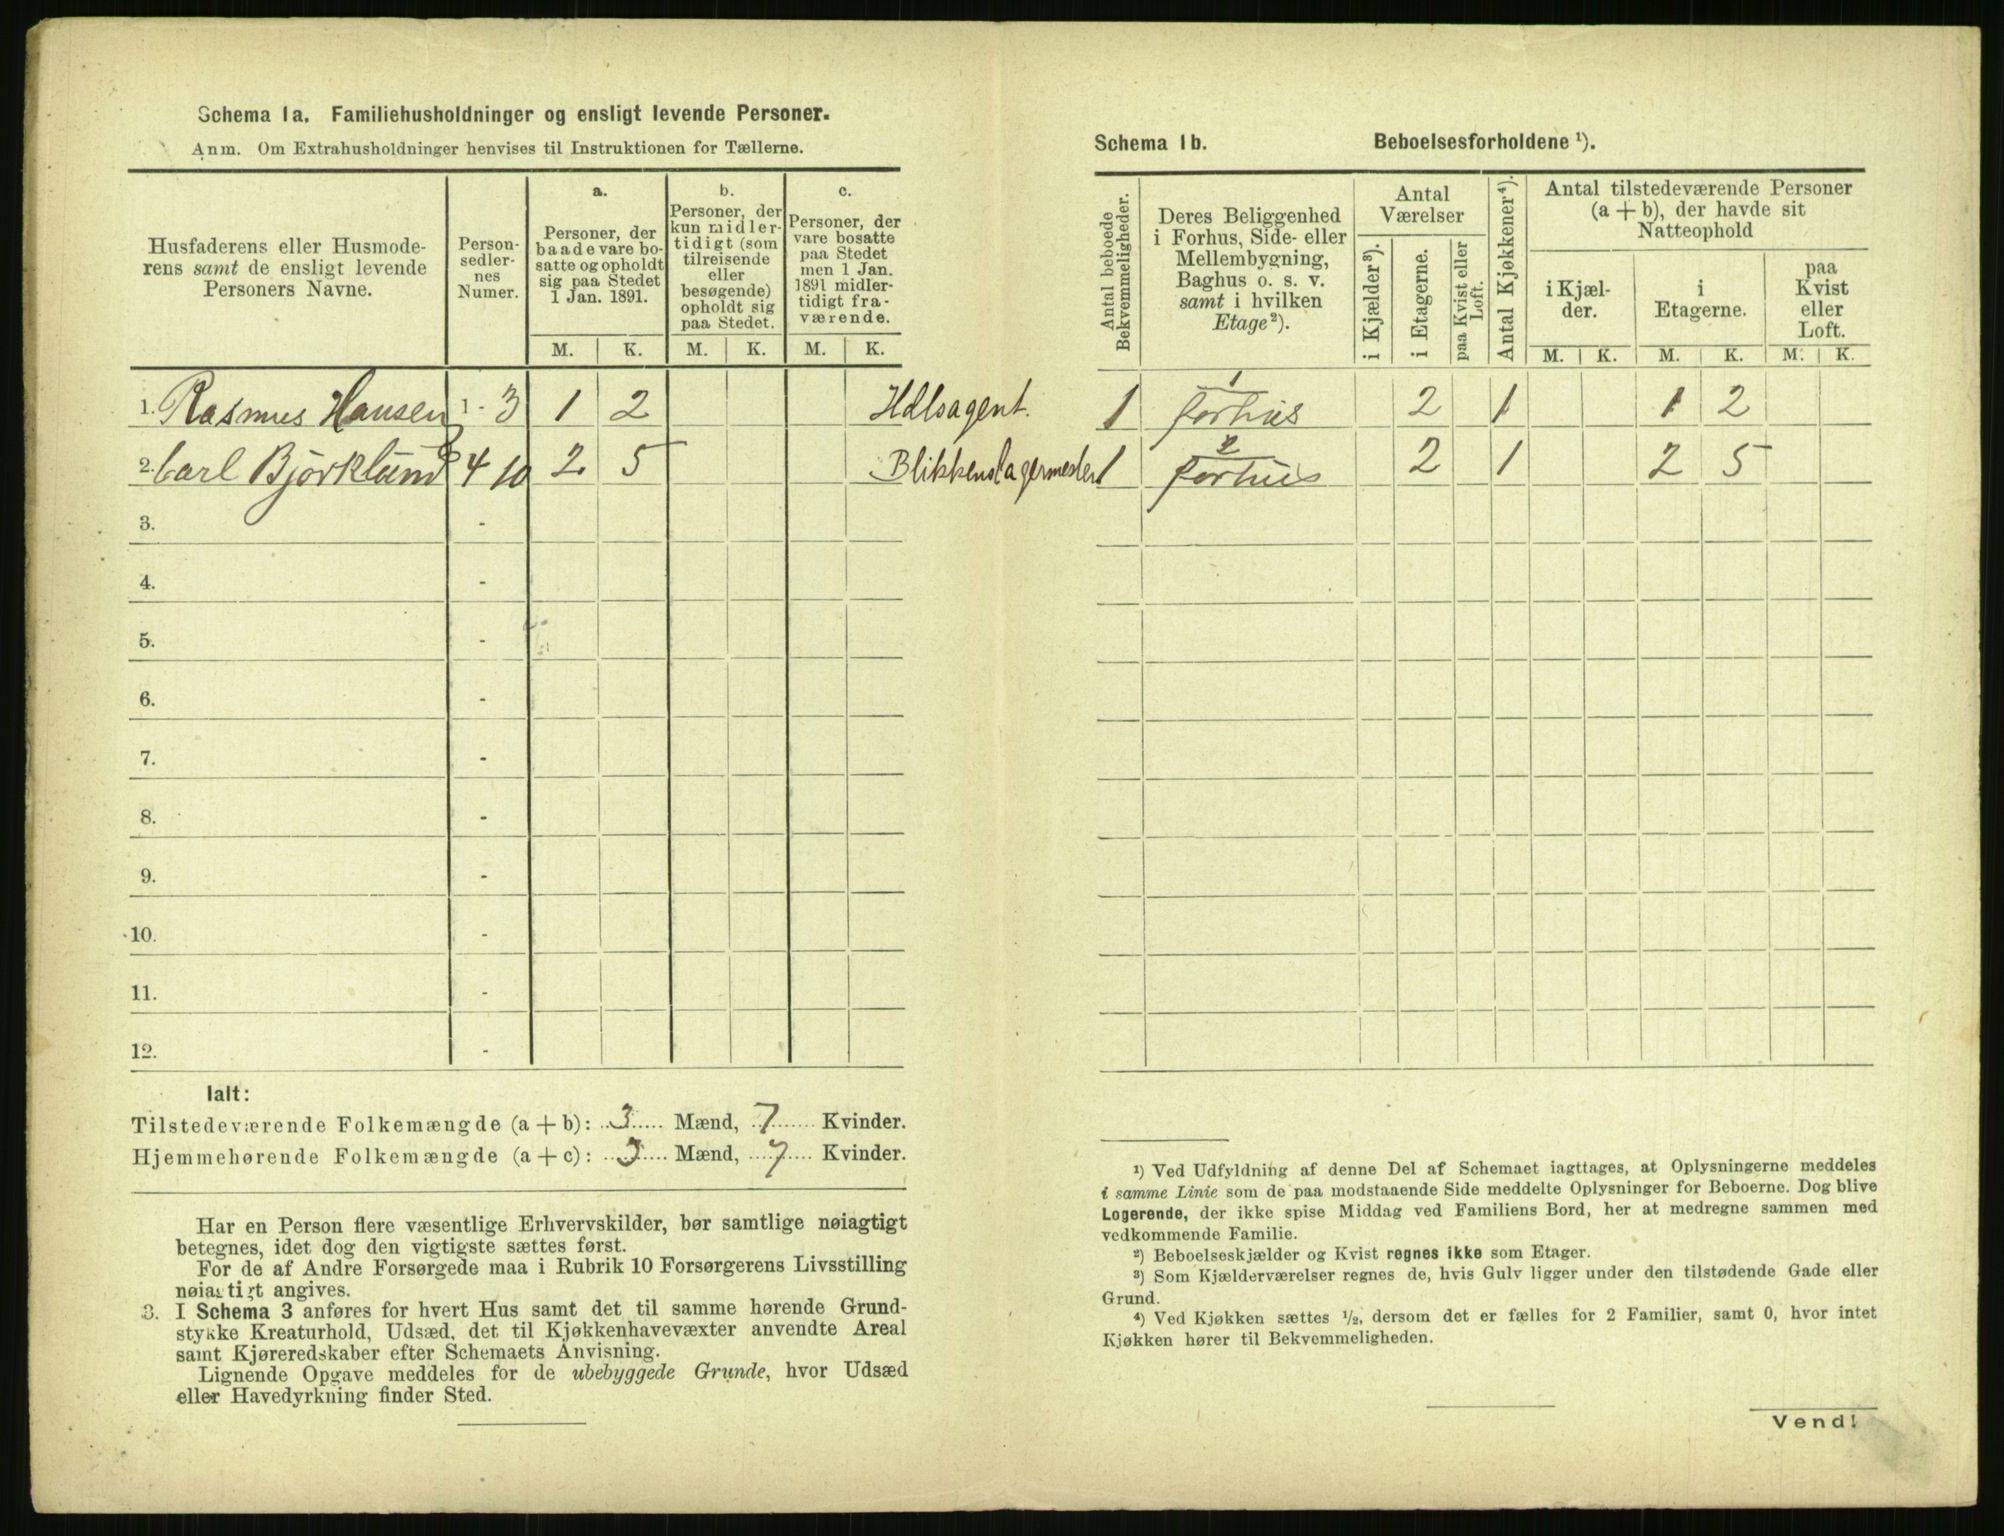 Schema 1a. Familiehusholdninger og ensligt levende Personer.
Anm. Om Extrahusholdninger henvises til Instruktionen for Tællerne.
Husfaderens eller Husmode-
rens samt de ensligt levende
Personers Navne.
Person-
sedler-
nes
Numer.
a.
Personer, der
baade vare bo-
satte og opholdt
sig paa Stedet
1 Jan. 1891.
b.
Personer, der
kun midler-
tidigt (som
tilreisende
eller
besøgende)
opholdt sig
paa Stedet.
c.
Personer, der
vare bosatte
paa Stedet
men 1 Jan.
1891 midler-
tidigt fra-
værende.
M. K. M. K. M. K.
1. Rasmus Hansen 1 - 3 1 2 Hdlsagent.
2. Carl Björklund 4 10 2 5 Blikkenslagermester
3. -
4. -
5. -
6. -
7. -
8. -
9. -
10. -
11. -
12. -
Ialt:
Tilstedeværende Folkemængde (a + b): 3 Mænd, 7 Kvinder.
Hjemmehørende Folkemængde (a + c): 3 Mænd, 7 Kvinder.
Har en Person flere væsentlige Erhvervskilder, bør samtlige nøiagtigt
betegnes, idet dog den vigtigste sættes først.
For de af Andre Forsørgede maa i Rubrik 10 Forsørgerens Livsstilling
nøiagtigt angives.
3. I Schema 3 anføres for hvert Hus samt det til samme hørende Grund-
stykke Kreaturhold, Udsæd, det til Kjøkkenhavevæxter anvendte Areal
samt Kjøreredskaber efter Schemaets Anvisning.
Lignende Opgave meddeles for de ubebyggede Grunde, hvor Udsæd
eller Havedyrkning finder Sted.
Schema 1b. Beboelsesforholdene ¹).
Antal beboede
Bekvemmeligheder.
Deres Beliggenhed
i Forhus, Side- eller
Mellembygning,
Baghus o. s. v.
samt i hvilken
Etage²).
Antal
Værelser
i Kjælder³).
i Etagerne.
paa Kvist eller
Loft.
Antal Kjøkkener⁴).
Antal tilstedeværende Personer
(a + b), der havde sit
Natteophold
i Kjæl-
der.
i
Etagerne.
paa
Kvist
eller
Loft.
M. K. M. K. M. K.
1
1 forhus 2 1 1 2
2
1 forhus 2 1 2 5
¹) Ved Udfyldning af denne Del af Schemaet iagttages, at Oplysningerne meddeles
i samme Linie som de paa modstaaende Side meddelte Oplysninger for Beboerne. Dog blive
Logerende, der ikke spise Middag ved Familiens Bord, her at medregne sammen med
vedkommende Familie.
²) Beboelseskjælder og Kvist regnes ikke som Etager.
³) Som Kjælderværelser regnes de, hvis Gulv ligger under den tilstødende Gade eller
Grund.
⁴) Ved Kjøkken sættes ½, dersom det er fælles for 2 Familier, samt 0, hvor intet
Kjøkken hører til Bekvemmeligheden.
Vend!